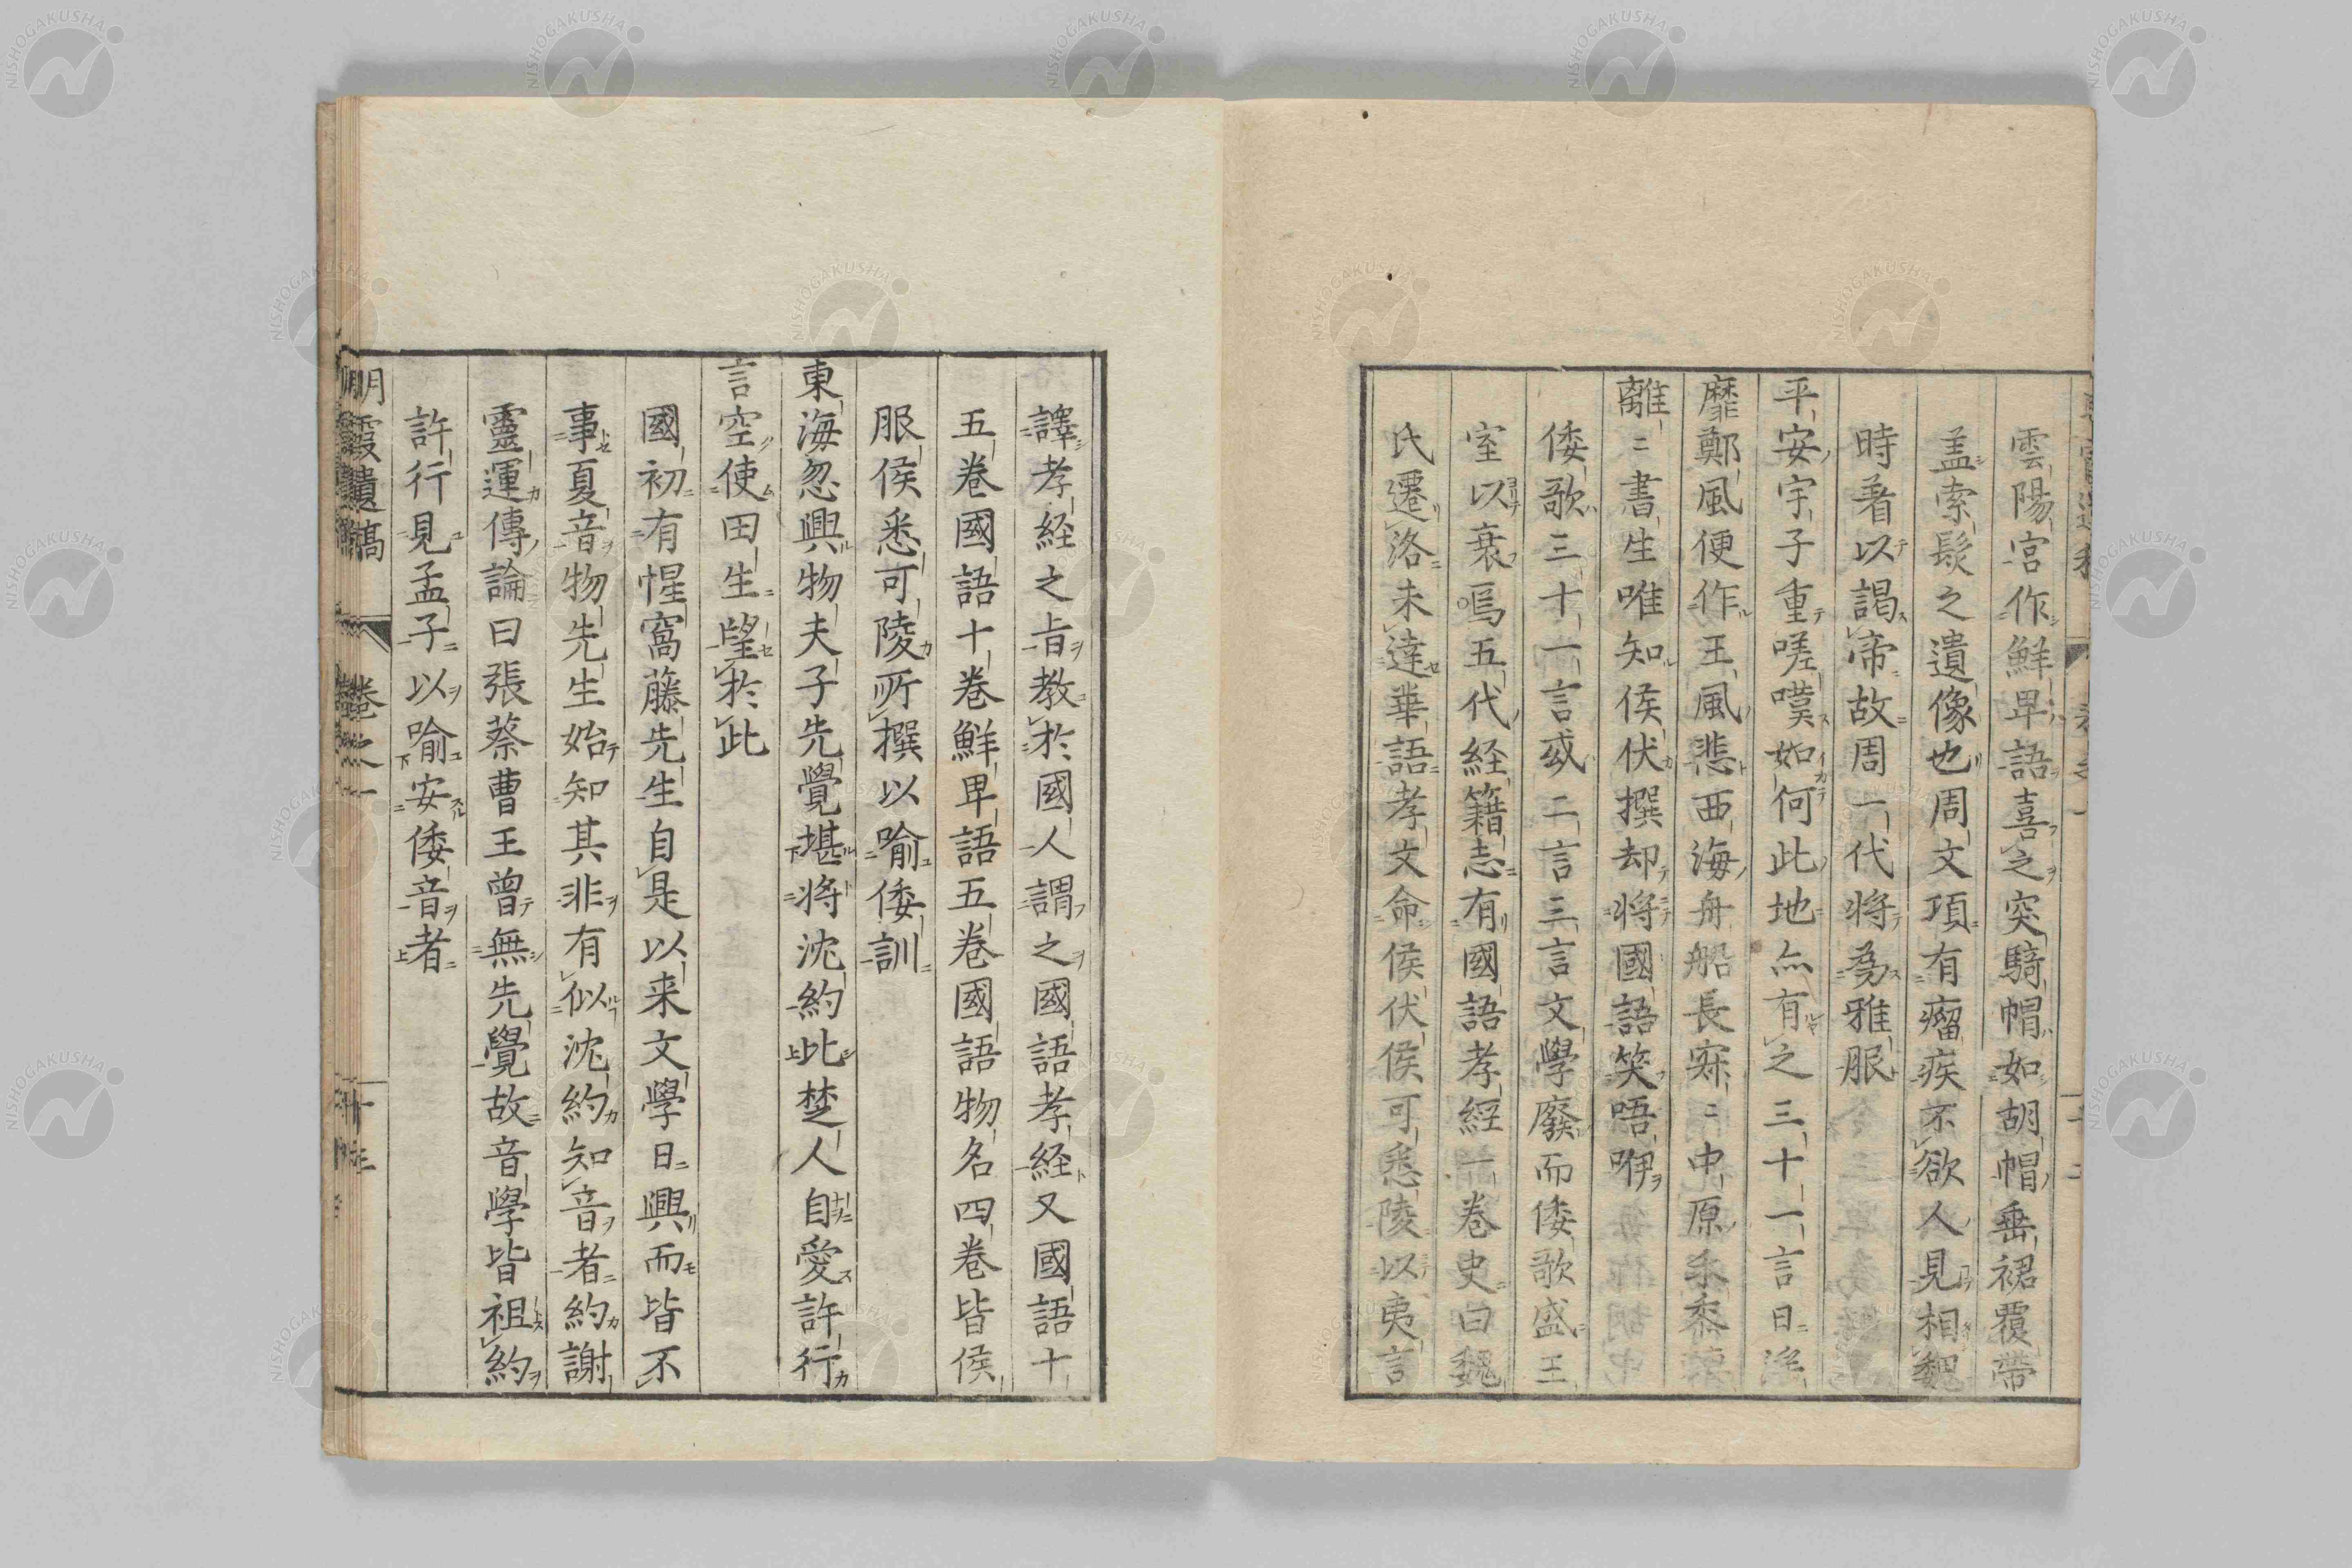 雲陽宮作鮮卑語喜之突騎帽如胡帽垂裙覆帶
盖索髮之遺像也周文項有瘤疾不欲人見相魏
時著以謁帝故周一代將為雅服
平安宇子重嗟嘆如何此地亦有之三十一言日滛
靡鄭風便作王風悲西海舟船長寂〻中原禾黍
離〻書生唯知侯伏撰却將國語笑唔咿
倭歌三十一言或二言三言文學廢而倭歌盛王
室以衰嗚五代經籍志有國語孝經一卷史曰魏
氏遷洛未達華語孝文命侯伏侯可悉陵以夷言
譯孝経之旨教於國人謂之國語孝経又國語十
五卷國語十卷鮮卑語五卷國語物名四卷皆侯
服侯悉可陵所撰以喻倭訓
東海忽興物夫子先覺堪將沈約比楚人自愛許行
言空使田生望於此
國初有惺窩藤先生自是以来文學日興而皆不
事夏音物先生始知其非有似沈約知音者約謝
靈運傳論曰張蔡曹王曾無先覺故音學皆祖約
許行見孟子以喻安倭音者
明霞遺稿
卷之一
NISHOGAKUSHA